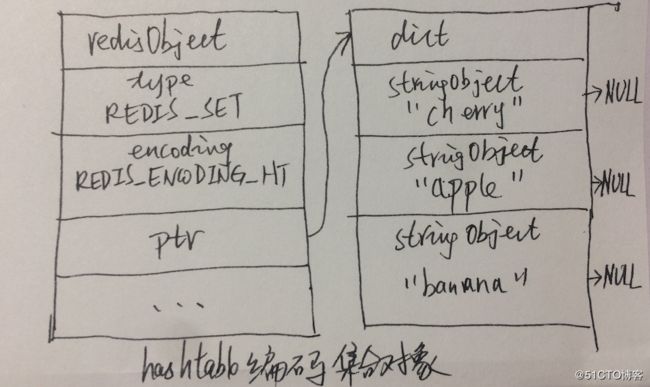 redisObject
type
REDIS_SET
encoding
REDIS_ENCODING_HT
ptr
...
dict
stringObject
"cherry"
NULL
stringObject
"apple"
NULL
stringObject
"banana"
NULL
hashtable编码集合对象
@51CTO博客